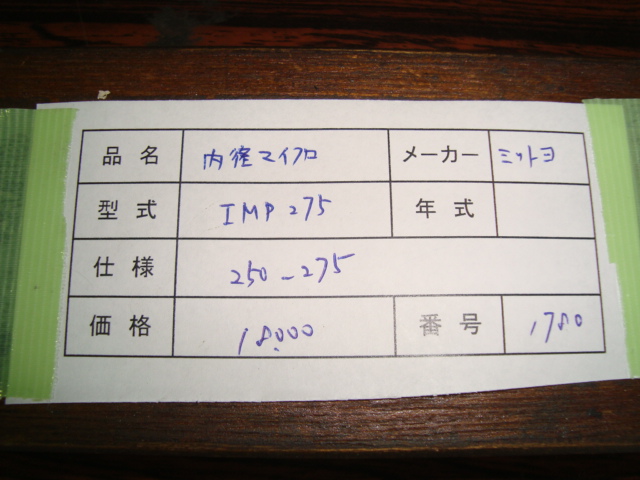 品名 内径マイクロ メーカー ミツトヨ
型式 IMP 275 年式
仕様 250-275
価格 18,000 番号 1780